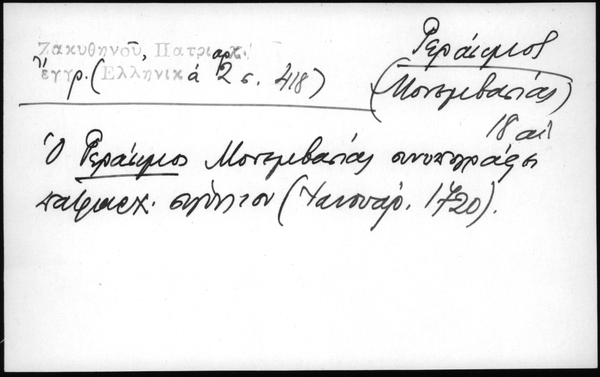 Ζακυθηνοῦ, Πατριαρχ.
ἔγγρ. (Ἑλληνικά 2 σ. 418)
Γεράσιμος
(Μονεμβασίας)
18 αἰ
Ὁ Γεράσιμος Μονεμβασίας συνυπογράφει
πατριαρχ. σιγίλλιον (Ἰανουάρ. 1720).